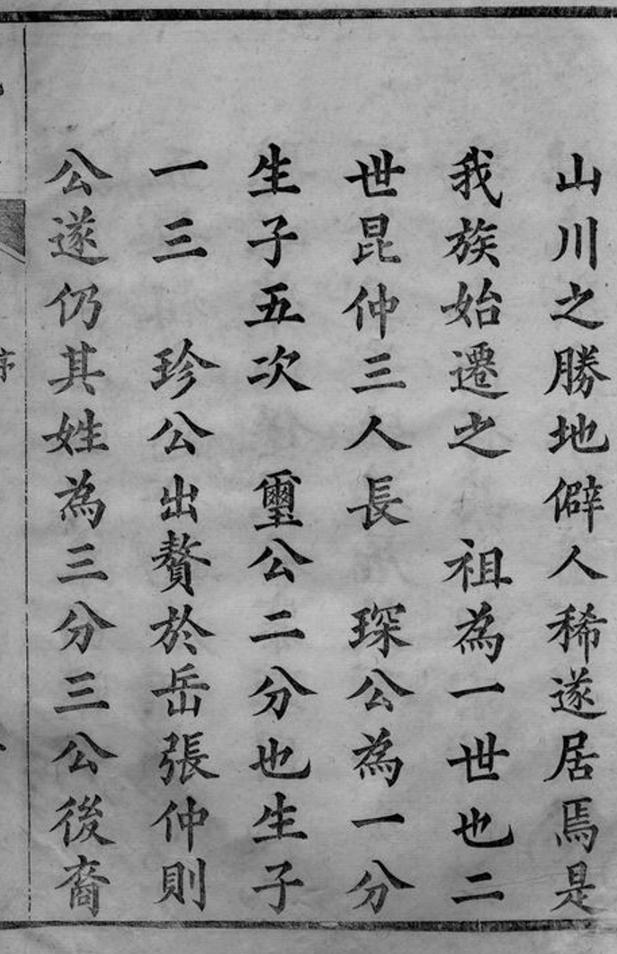 山川之勝地僻人稀遂居焉是
我族始遷之　祖為一世也二
世昆仲三人長　琛公為一分
生子五次　璽公二分也生子
一三　珍公出贅於岳張仲則
公遂仍其姓為三分三公後裔
序